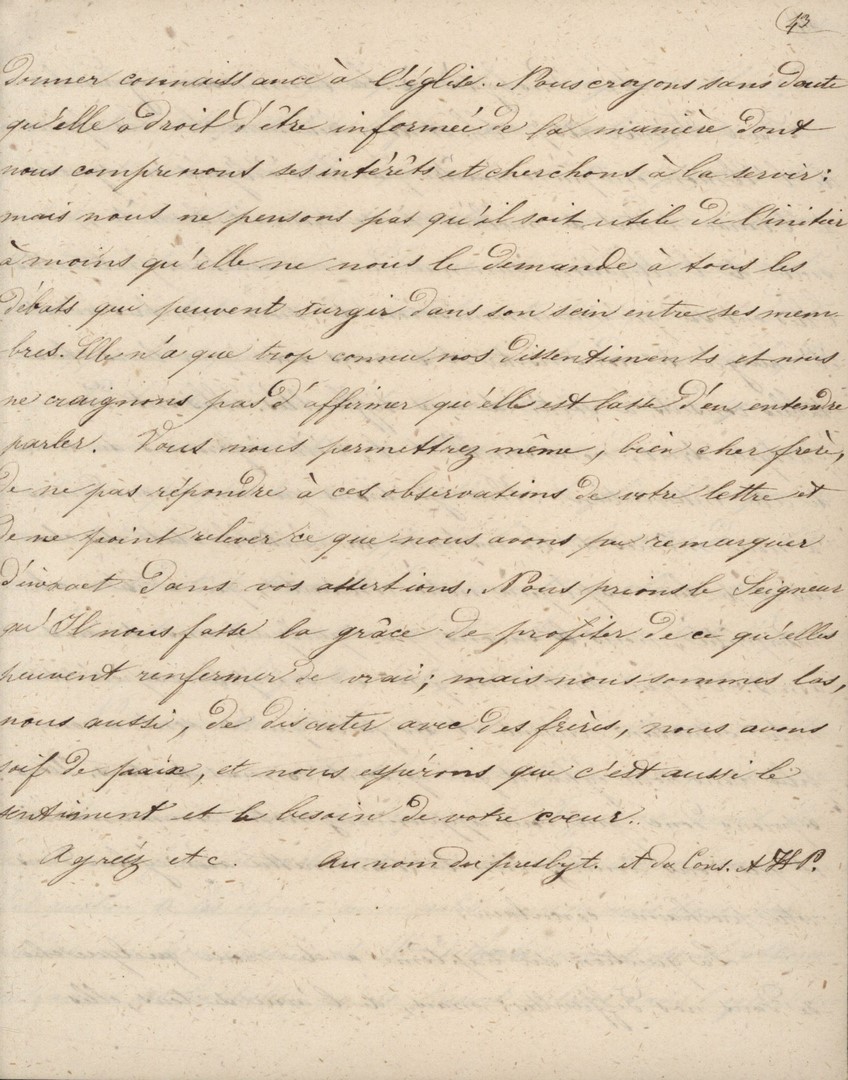 43
donner connaissance à l'église. Nous croyons sans doute
qu'elle a droit d'être informée de la manière dont
nous comprenons ses intérêts et cherchons à la servir:
mais nous ne pensons pas qu'il soit utile de l'initier
à moins qu'elle ne nous le demande à tous les
débats qui peuvent surgir dans son sein entre ses mem-
bres. Elle n'a que trop connu nos dissentiments et nous
ne craignons pas d'affirmer qu'elle est lasse d'en entendre
parler. Vous nous permettrez même, bien cher frère,
de ne pas répondre à ces observations de votre lettre et
de ne point relever ce que nous avons pu remarquer
d'inexact dans vos assertions. Nous prions le Seigneur
qu'Il nous fasse la grâce de profiter de ce qu'elles
peuvent renfermer de vrai; mais nous sommes las,
nous aussi, de discuter avec des frères, nous avons
soif de paix, et nous espérons que c'est aussi le
sentiment et le besoin de votre coeur.
Agréez etc. Au nom du presbyt. et du Cons. A H P.